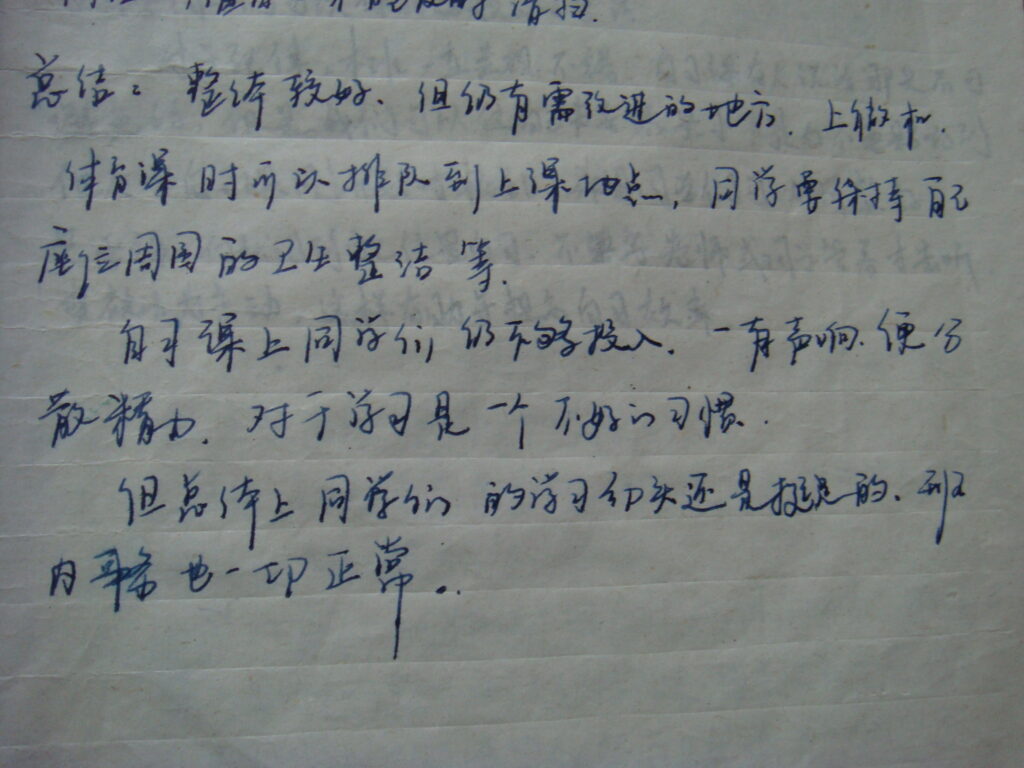 清扫.
总结：整体较好、但仍有需改进的地方、上微机、
体育课时可以排队到上课地点，同学要保持自己
座位周围的卫生整洁等.
自习课上同学们仍不够投入、一有声响、便分
散精力、对于学习是一个不好的习惯.
但总体上同学们的学习劲头还是挺足的、班
内 也一切正常。